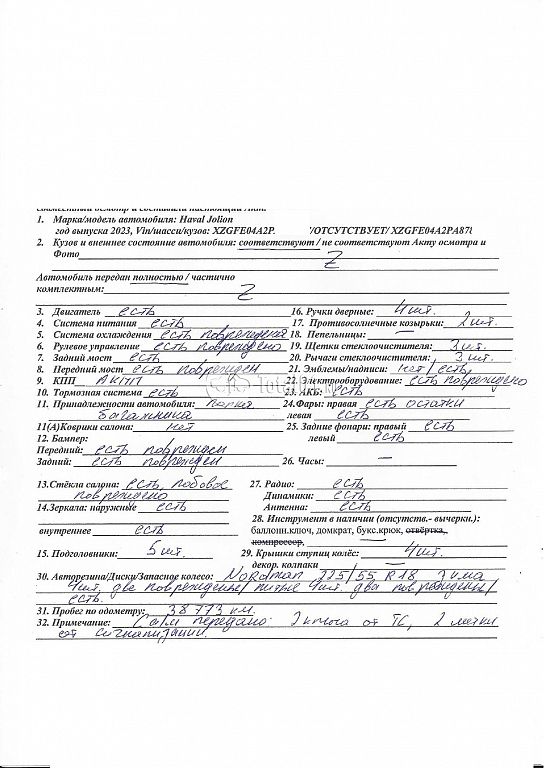 1. Марка/модель автомобиля: Haval Jolion
год выпуска 2023, Vin/шасси/кузов: XZGFE04A2P. /ОТСУТСТВУЕТ/ XZGFE04A2PA87
2. Кузов и внешнее состояние автомобиля: соответствуют / не соответствуют Акту осмотра и
Фото
Автомобиль передан полностью / частично
комплектным:
3. Двигатель есть 16. Ручки дверные: 4 шт.
4. Система питания есть 17. Противосолнечные козырьки: 2 шт.
5. Система охлаждения есть повреждена 18. Пепельницы: —
6. Рулевое управление есть повреждено 19. Щетки стеклоочистителя: 3 шт.
7. Задний мост есть 20. Рычаги стеклоочистителя: 3 шт.
8. Передний мост есть поврежден 21. Эмблемы/надписи: нет / есть
9. КПП АКПП 22. Электрооборудование: есть повреждено
10. Тормозная система есть 23. АКБ: есть
11. Принадлежности автомобиля: полка 24.Фары: правая есть остатки
багажника левая есть
11(А)Коврики салона: нет 25. Задние фонари: правый есть
12. Бампер: левый есть
Передний: есть поврежден
Задний: есть поврежден 26. Часы: —
13.Стёкла салона: есть, лобовое 27. Радио: есть
повреждено Динамики: есть
14.Зеркала: наружные есть Антенна: есть
28. Инструмент в наличии (отсутств.- вычеркн.):
внутреннее есть баллонн.ключ, домкрат, букс.крюк, отвёртка,
компрессор,
15. Подголовники: 5 шт. 29. Крышки ступиц колёс: 4 шт.
декор. колпаки —
30. Авторезина/Диски/Запасное колесо: Nordman 225/55 R18 зима
4 шт. две повреждены/ литые 4 шт. два повреждены/
есть
31. Пробег по одометру: 38773 км.
32. Примечание: С а/м передано: 2 ключа от ТС, 2 метки
от сигнализации.